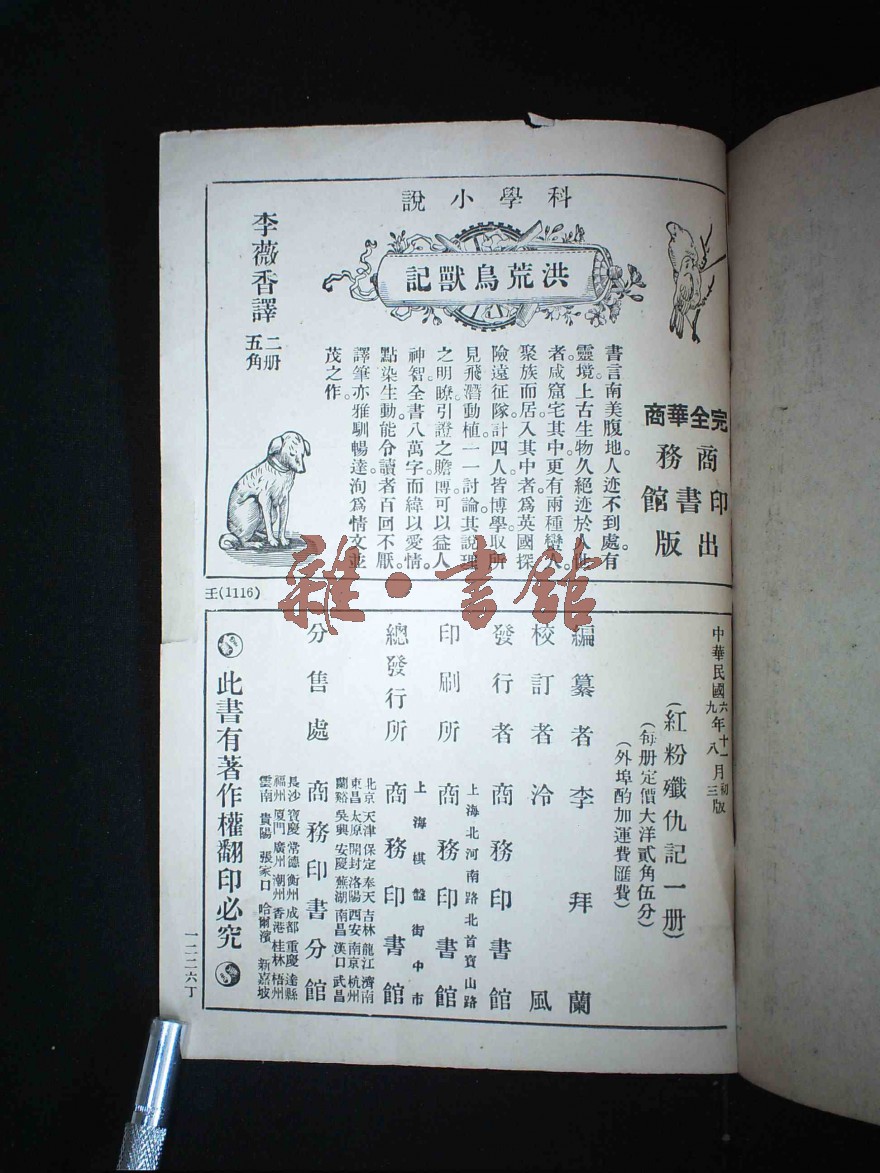 科學小說
洪荒鳥獸記
李薇香譯
二册
五角
完全華商
商務印書館出版
書言南美腹地。人迹不到處。有
靈境。上古生物久絕迹於人世
者。咸窟宅其中。更有兩種蠻人。
聚族而居。入其中者。爲英國探
險遠征隊。計四人。皆博學。取所
見飛潛動植。一一討論。其說理
之明瞭。引證之贍博。可以益人
神智。全書八萬字。而緯以愛情。
點染生動。能令讀者百回不厭。
譯筆亦雅馴暢達。洵爲情文並
茂之作。
王(1116)
雜·書館
中華民國六年十一月初版
九年八月三版
(紅粉殲仇記一册)
(每册定價大洋貳角伍分)
(外埠酌加運費匯費)
編纂者 李拜蘭
校訂者 泠風
發行者 商務印書館
上海北河南路北首寶山路
印刷所 商務印書館
上海棋盤街中市
總發行所 商務印書館
北京 天津 保定 奉天 吉林 龍江 濟南
東昌 太原 開封 洛陽 西安 南京 杭州
蘭谿 吳興 安慶 蕪湖 南昌 漢口 武昌
分售處 商務印書分館
長沙 寶慶 常德 衡州 成都 重慶 達縣
福州 廈門 廣州 潮州 香港 桂林 梧州
雲南 貴陽 張家口 哈爾濱 新嘉坡
此書有著作權翻印必究
一二二六丁